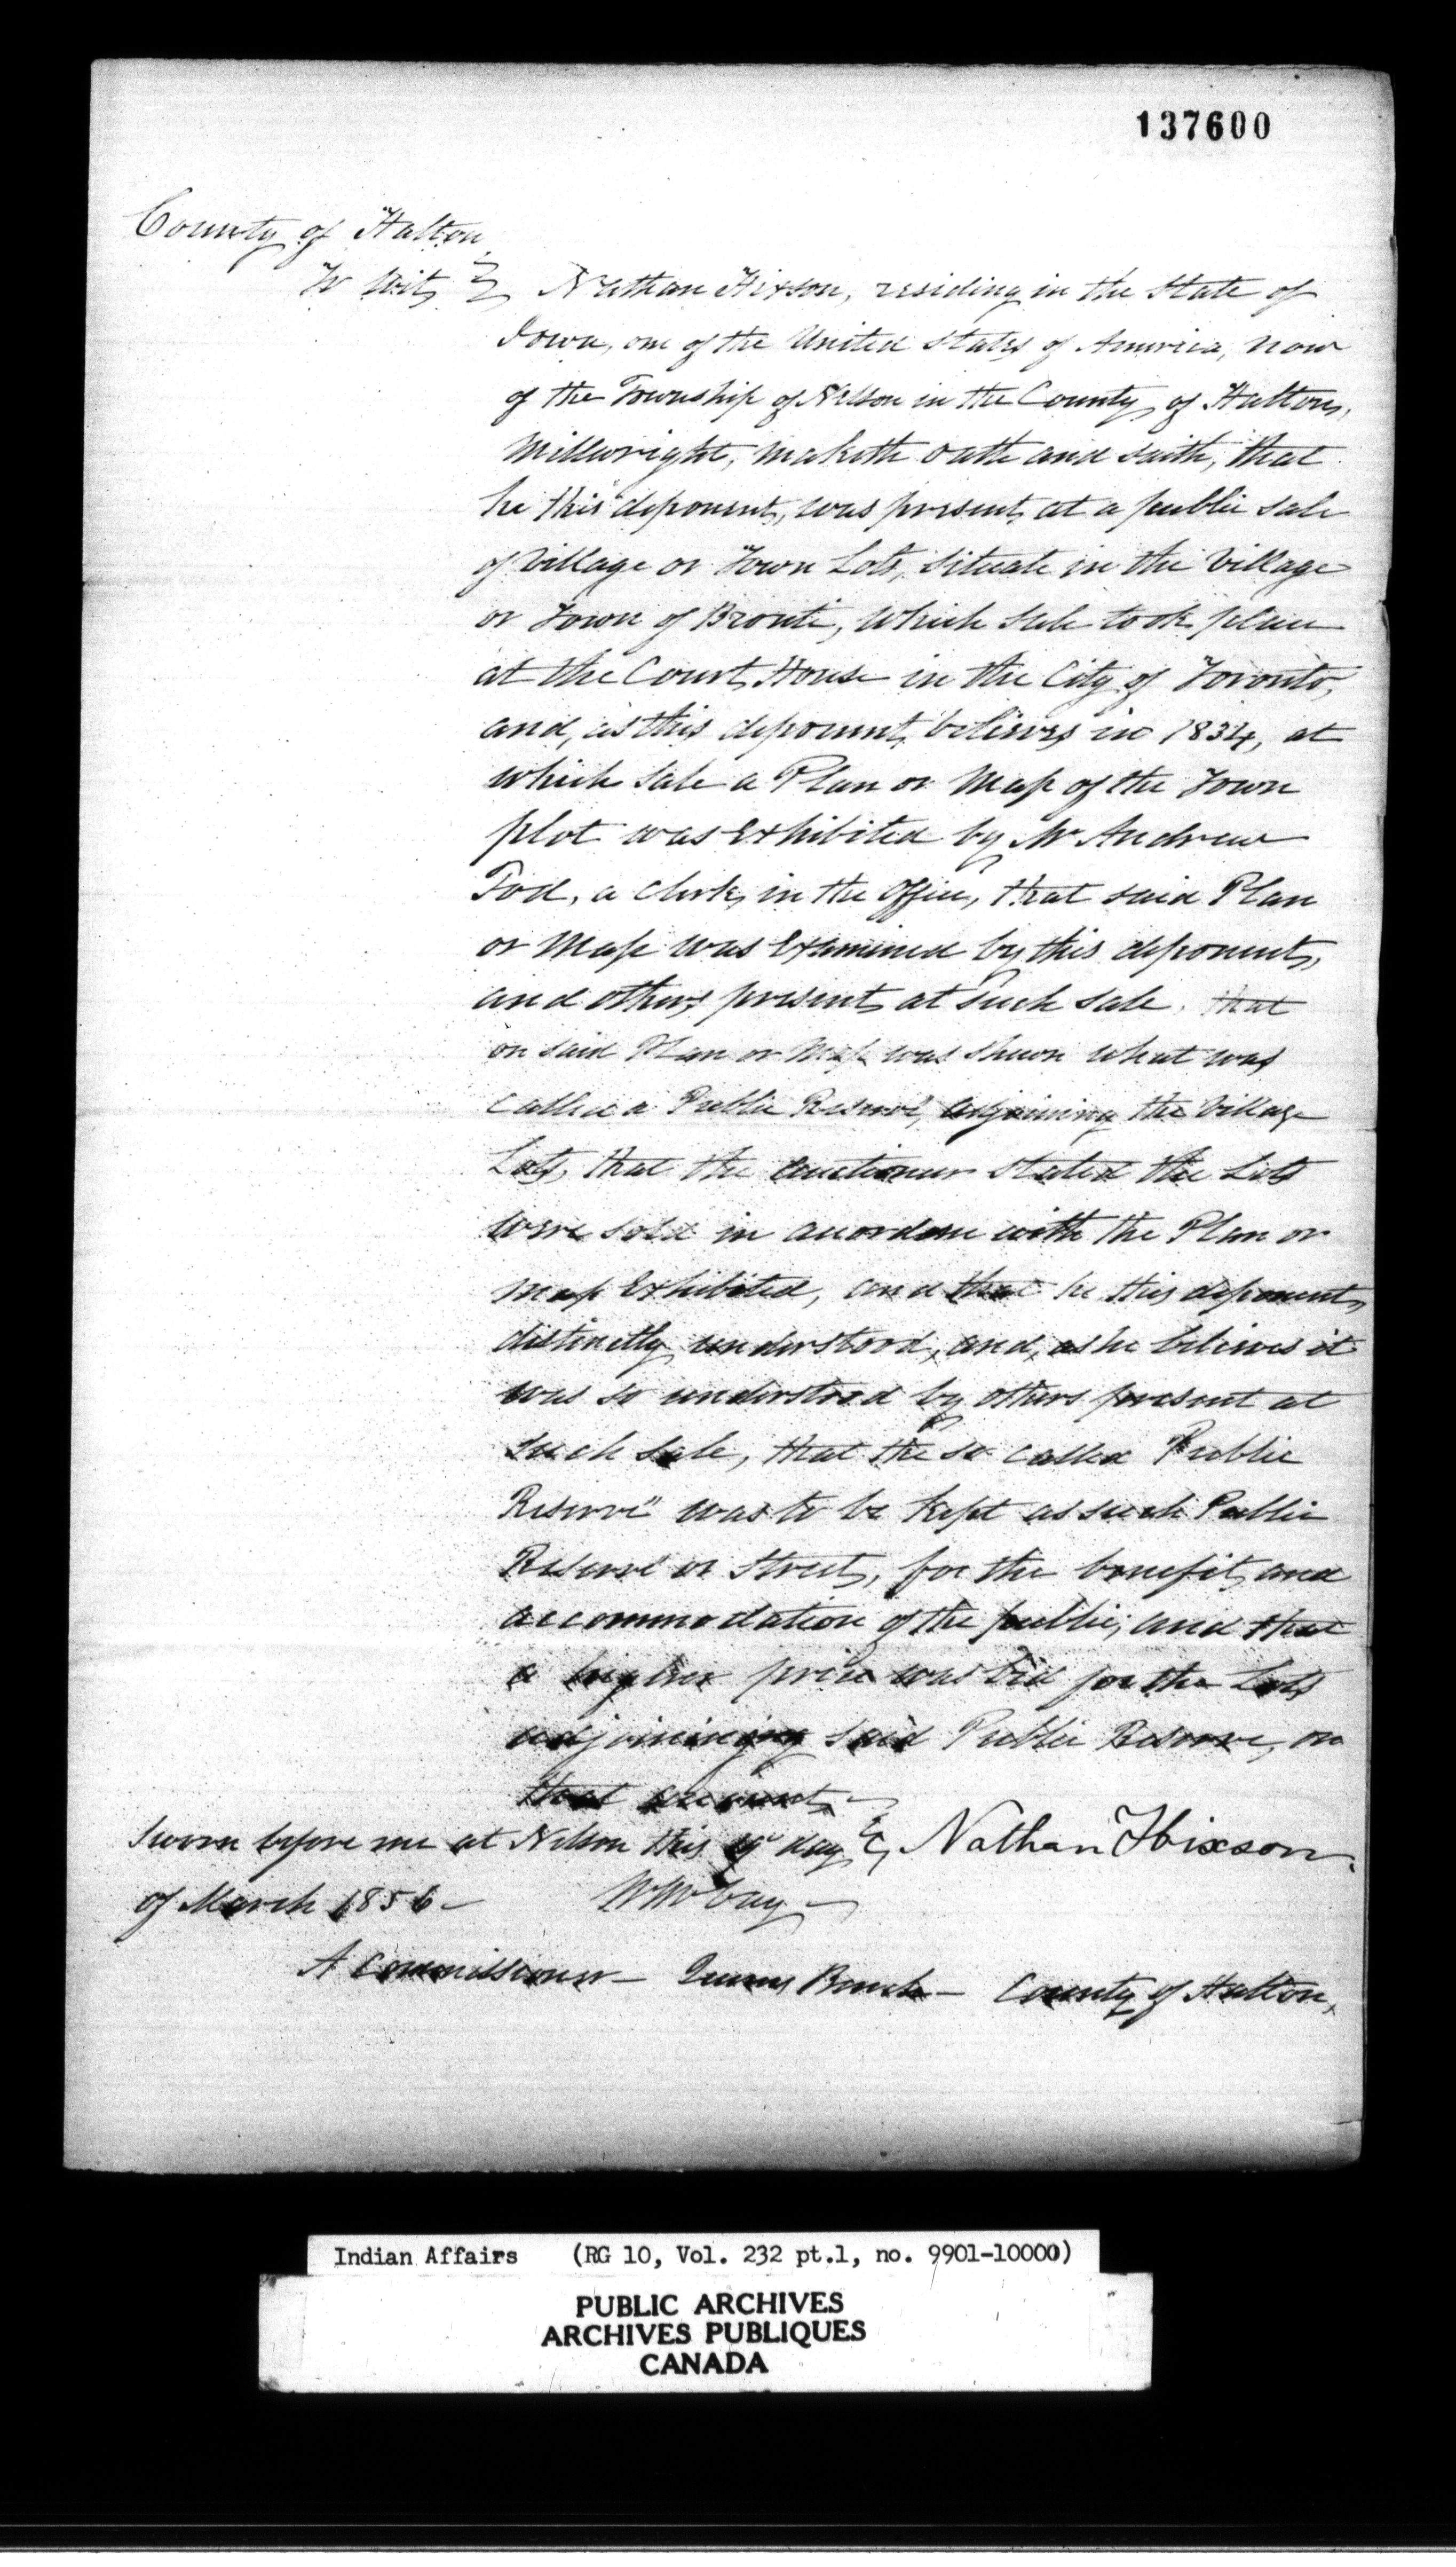 137600
County of Halton
To Wit, Nathan Hixson, residing in the State of
Iowa, one of the United States of America, now
of the Township of Nelson in the County of Halton,
Millwright, maketh oath and saith, that
he this deponent, was present at a public sale
of Village or Town Lots, situate in the Village
or Town of Bronte, which sale took place
at the Court House in the City of Toronto,
and, as this deponent believes in 1834, at
which sale a Plan or Map of the Town
plot was Exhibited by Mr Andrew
Tod, a Clerk in the Office, that said Plan
or Map was Examined by this deponent,
and others present at such sale, that
on said Plan or Map was shewn what was
called a Public Reserve", adjoining the Village
Lots, that the auctioneer stated the Lots
were sold in accordance with the Plan or
Map Exhibited, and that he this deponent,
distinctly understood, and, as he believes it
was so understood by others present at
such sale, that the so called Public
Reserve" was to be kept as such Public
Reserve or Street, for the benefit and
accommodation of the public; and that
a higher price was bid for the Lots
adjoining said Public Reserve, on
that account.
Sworn before me at Nelson this day Nathan Hixson.
of March 1856
A Commissioner - Queens Bench - County of Halton,
Indian Affairs (RG 10, Vol. 232 pt.1, no. 9901-10000)
PUBLIC ARCHIVES
ARCHIVES PUBLIQUES
CANADA